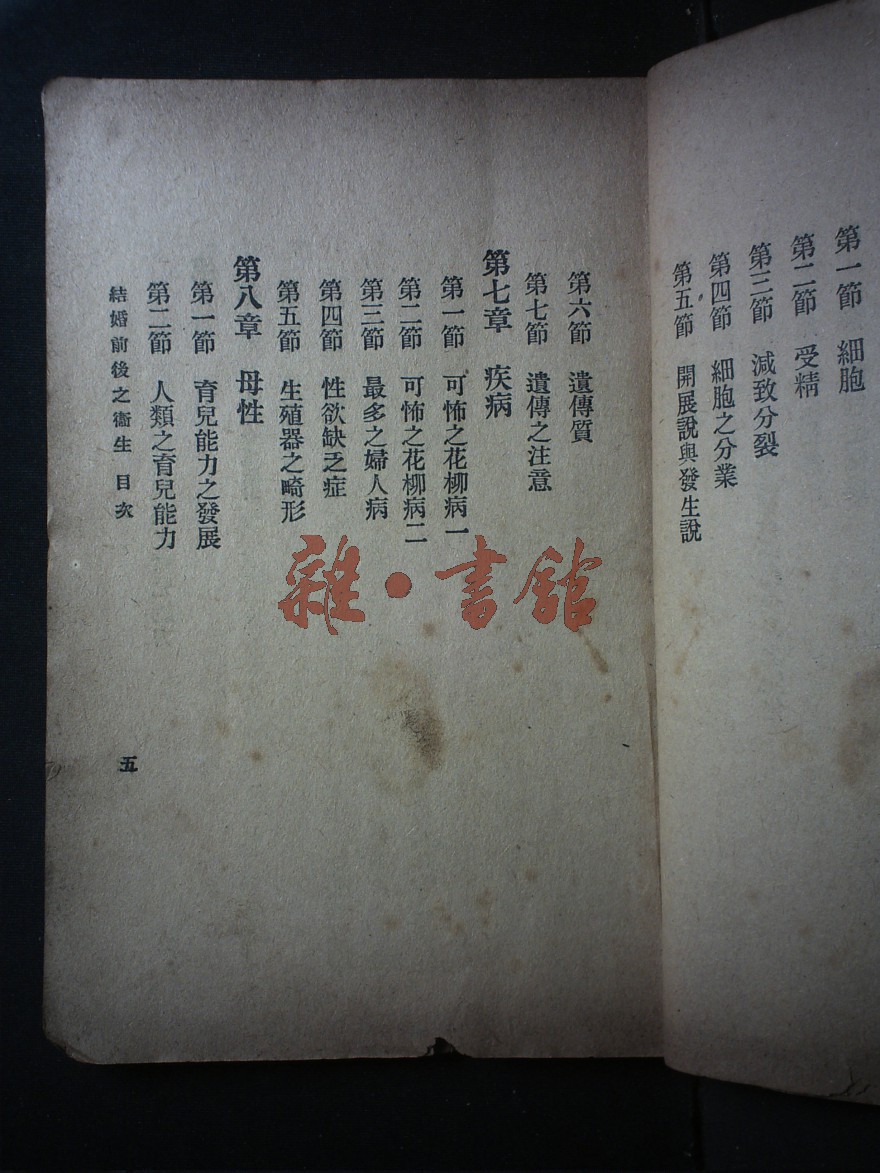 第一節 細胞
第二節 受精
第三節 減致分裂
第四節 細胞之分業
第五節 開展說與發生說
第六節 遺傳質
第七節 遺傳之注意
第七章 疾病
第一節 可怖之花柳病一
第二節 可怖之花柳病二
第三節 最多之婦人病
第四節 性欲缺乏症
第五節 生殖器之畸形
第八章 母性
第一節 育兒能力之發展
第二節 人類之育兒能力
結婚前後之衞生 目次
五
雜·書館